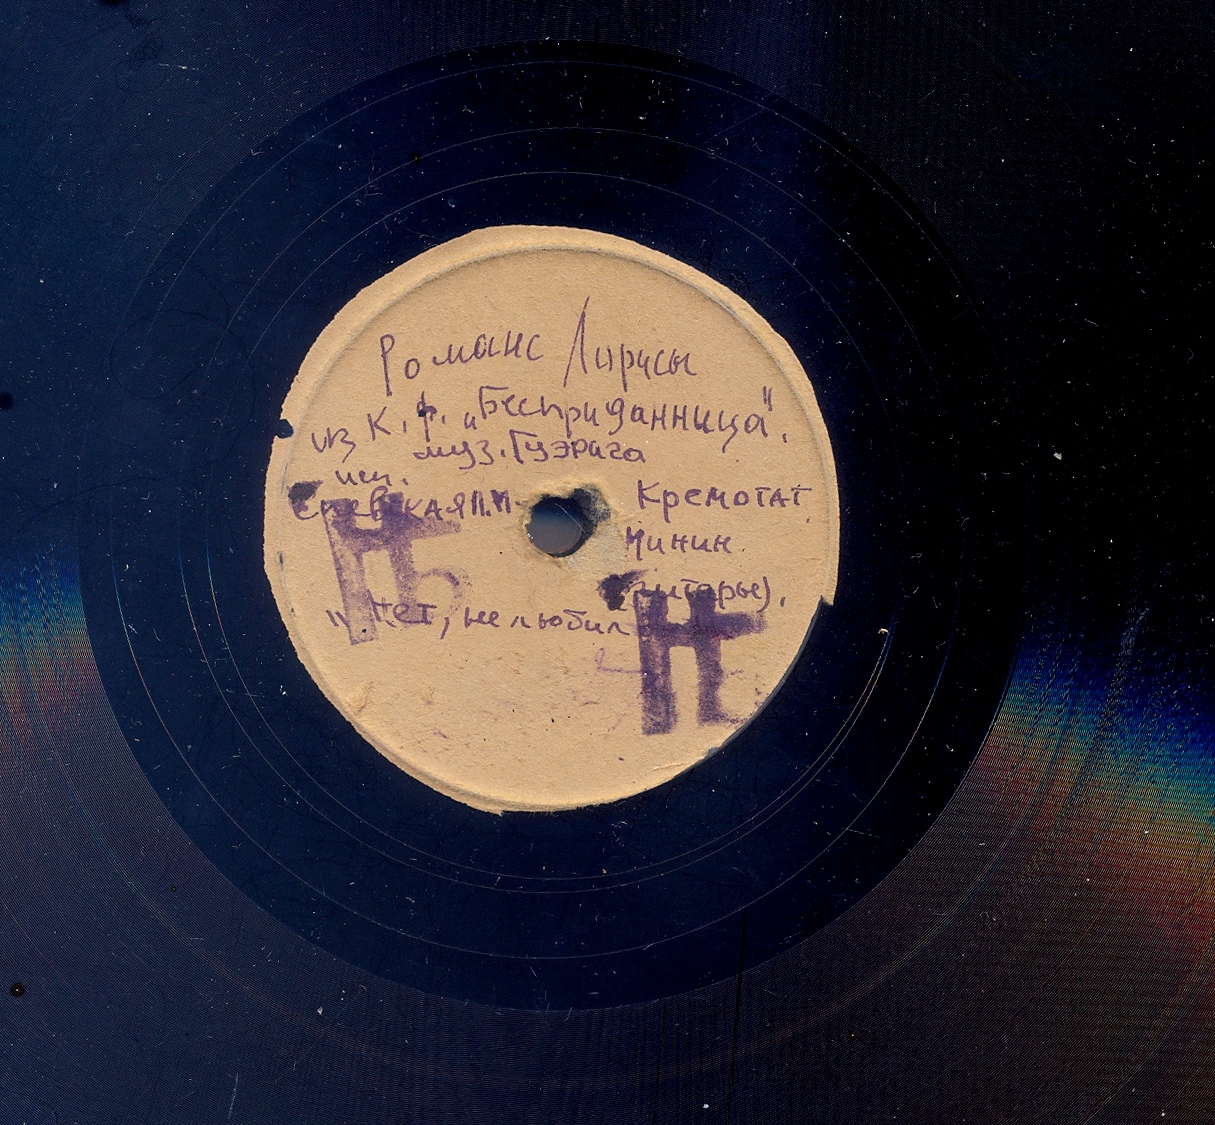 Романс Ларисы
из к.ф. „Бесприданница".
муз. Гуэрага
исп.
Кремотат.
Минин.
(гитары),
"Нет, не любил
Н
Н